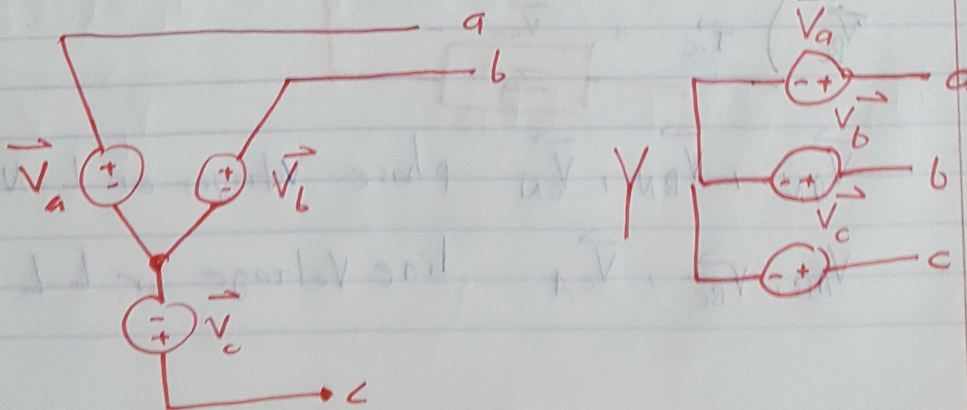 a
b
V⃗a
+
-
+
-
V⃗b
-
+
V⃗c
c
Y
V⃗a
- +
a
V⃗b
- +
b
V⃗c
- +
c